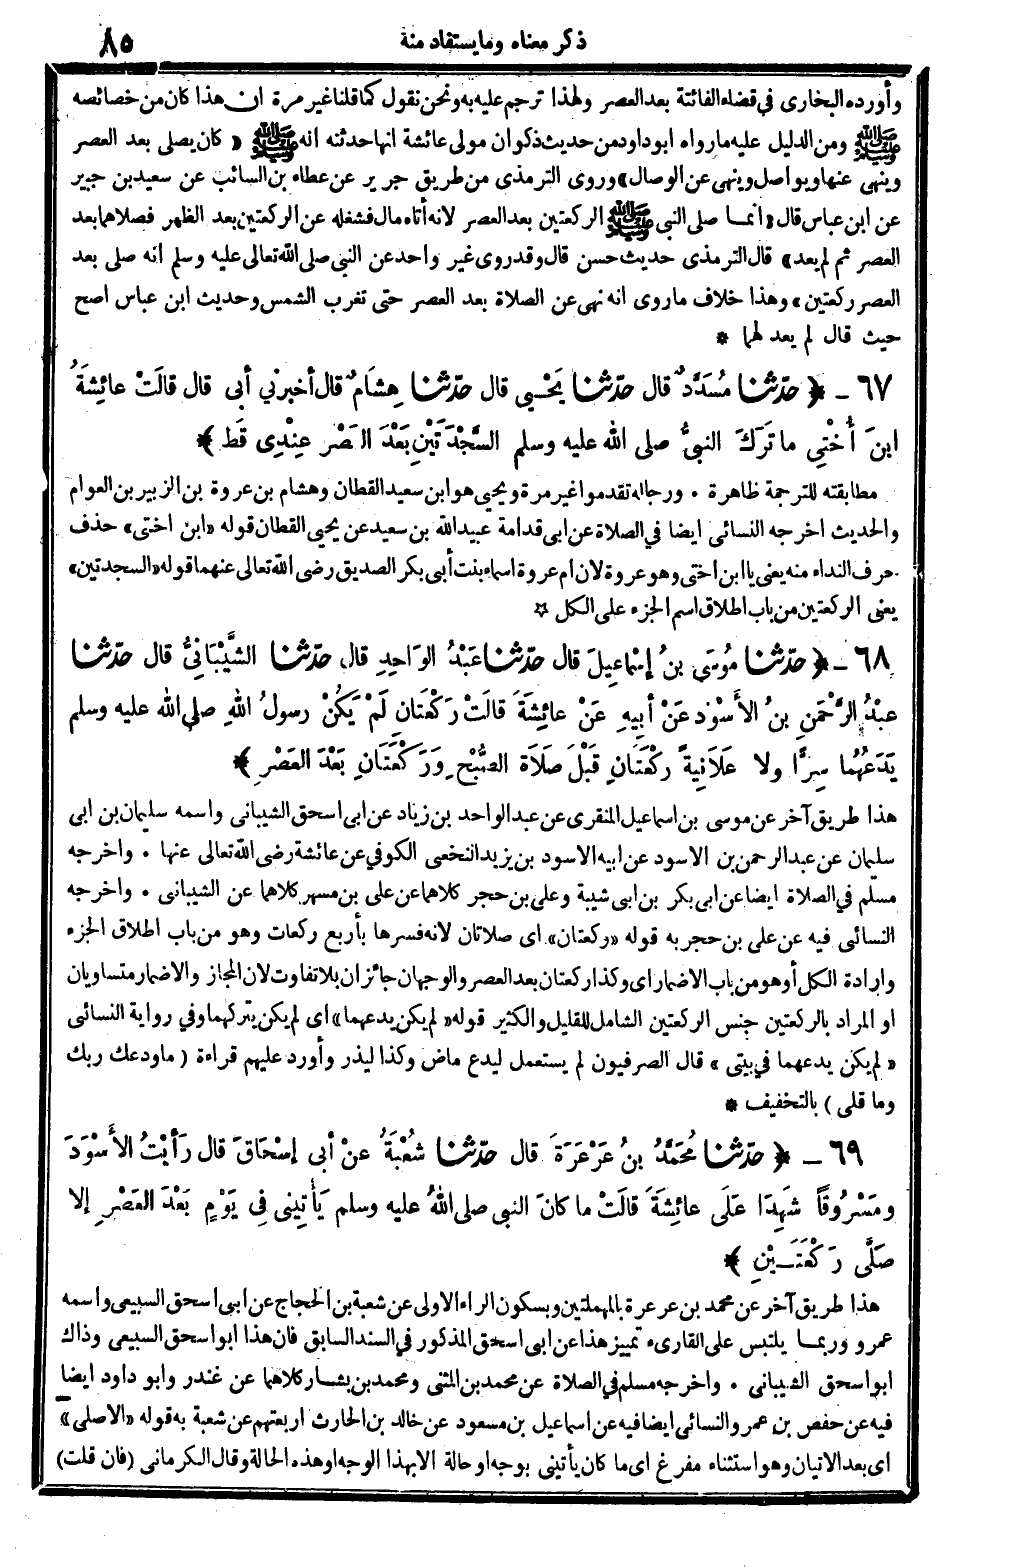 ذكر معناه وما يستفاد منه ٨٥
وأورده البخارى فى قضاء الفائتة بعد العصر ولهذا ترجم عليه به ونحن نقول كما قلنا غير مرة ان هذا كان من خصائصه
ﷺ ومن الدليل عليه ما رواه ابو داود من حديث ذكوان مولى عائشة انها حدثته انه ﷺ « كان يصلى بعد العصر
وينهى عنها ويواصل وينهى عن الوصال » وروى الترمذى من طريق جرير عن عطاء بن السائب عن سعيد بن جبير
عن ابن عباس قال « انما صلى النبى ﷺ الركعتين بعد العصر لانه أتاه مال فشغله عن الركعتين بعد الظهر فصلاهما بعد
العصر ثم لم يعد » قال الترمذى حديث حسن قال وقد روى غير واحد عن النبى صلى الله تعالى عليه وسلم انه صلى بعد
العصر ركعتين » وهذا خلاف ما روى انه نهى عن الصلاة بعد العصر حتى تغرب الشمس وحديث ابن عباس اصح
حيث قال لم يعد لهما *
٦٧ ـ ﴿ حدّثنا مُسَدَّدٌ قال حدّثنا يَحْيى قال حدّثنا هِشَامٌ قال أخبرني أبى قال قالَتْ عائِشَةُ
ابنَ أُخْتِي ما تَرَكَ النبىُّ صلى الله عليه وسلم السَّجْدَتَيْنِ بَعْدَ العَصْرِ عِنْدِى قَط ﴾
مطابقته للترجمة ظاهرة . ورجاله تقدموا غير مرة ويحيى هو ابن سعيد القطان وهشام بن عروة بن الزبير بن العوام
والحديث اخرجه النسائى ايضا في الصلاة عن ابى قدامة عبيد الله بن سعيد عن يحيى القطان قوله « ابن اختى » حذف
حرف النداء منه يعنى يا ابن اختى وهو عروة لان ام عروة اسماء بنت أبى بكر الصديق رضى الله تعالى عنهما قوله « السجدتين »
يعنى الركعتين من باب اطلاق اسم الجزء على الكل ☆
٦٨ ـ ﴿ حدّثنا مُوسَى بنُ إسْماعِيلَ قال حدّثنا عَبْدُ الوَاحِدِ قال حدّثنا الشَّيْبَانِيُّ قال حدّثنا
عبْدُ الرَّحْمَنِ بنُ الأَسْوَدِ عَنْ أبِيهِ عَنْ عائِشَةَ قالَتْ رَكْعَتَانِ لَمْ يَكُنْ رسولُ اللهِ صلى الله عليه وسلم
يَدَعُهُما سِرًّا ولا عَلاَنِيةً رَكْعَتَانِ قَبْلَ صَلاَةِ الصُّبْحِ وَرَكْعَتَانِ بَعْدَ العَصْرِ ﴾
هذا طريق آخر عن موسى بن اسماعيل المنقرى عن عبد الواحد بن زياد عن ابى اسحق الشيبانى واسمه سليمان بن ابى
سليمان عن عبد الرحمن بن الاسود عن ابيه الاسود بن يزيد النخعى الكوفي عن عائشة رضى الله تعالى عنها . واخرجه
مسلم فى الصلاة ايضا عن ابى بكر بن ابى شيبة وعلى بن حجر كلاهما عن على بن مسهر كلاهما عن الشيبانى . واخرجه
النسائى فيه عن على بن حجر به قوله « ركعتان » اى صلاتان لانه فسرها بأربع ركعات وهو من باب اطلاق الجزء
وارادة الكل أو هو من باب الاضمار اى وكذا ركعتان بعد العصر والوجهان جائزان بلا تفاوت لان المجاز والاضمار متساويان
او المراد بالركعتين جنس الركعتين الشامل للقليل والكثير قوله « لم يكن يدعهما » اى لم يكن يتركهما وفي رواية النسائى
« لم يكن يدعهما في بيتى » قال الصرفيون لم يستعمل ليدع ماض وكذا ليذر وأورد عليهم قراءة ( ما ودعك ربك
وما قلى ) بالتخفيف *
٦٩ ـ ﴿ حدّثنا مُحَمَّدُ بنُ عَرْعَرَةَ قال حدّثنا شُعْبَةُ عنْ أبى إسْحَاقَ قال رَأيْتُ الأَسْوَدَ
ومَسْرُوقاً شَهِدَا عَلَى عائِشَةَ قالَتْ ما كانَ النبى صلى اللهُ عليه وسلم يَأْتِينِى فِى يَوْمٍ بَعْدَ العَصْرِ إلا
صَلَّى رَكْعَتَـيْنِ ﴾
هذا طريق آخر عن محمد بن عرعرة بالمهملتين وبسكون الراء الاولى عن شعبة بن الحجاج عن ابى اسحق السبيعى واسمه
عمرو وربما يلتبس على القارىء تمييز هذا عن ابى اسحق المذكور في السند السابق فان هذا ابو اسحق السبيعى وذاك
ابو اسحق الشيبانى . واخرجه مسلم في الصلاة عن محمد بن المثنى ومحمد بن بشار كلاهما عن غندر وابو داود ايضا
فيه عن حفص بن عمر والنسائى ايضا فيه عن اسماعيل بن مسعود عن خالد بن الحارث اربعتهم عن شعبة به قوله « الاصلى »
اى بعد الاتيان وهو استثناء مفرغ اى ما كان يأتينى بوجه او حالة الا بهذا الوجه او هذه الحالة وقال الكرمانى ( فان قلت )